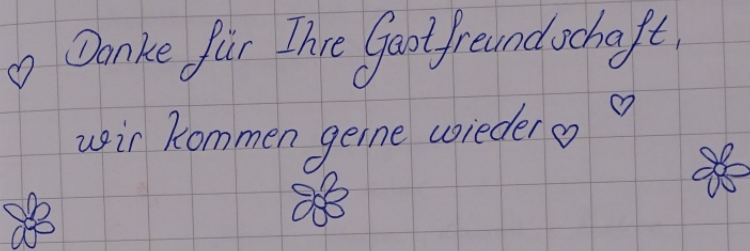 Danke für Ihre Gastfreundschaft,
wir kommen gerne wieder